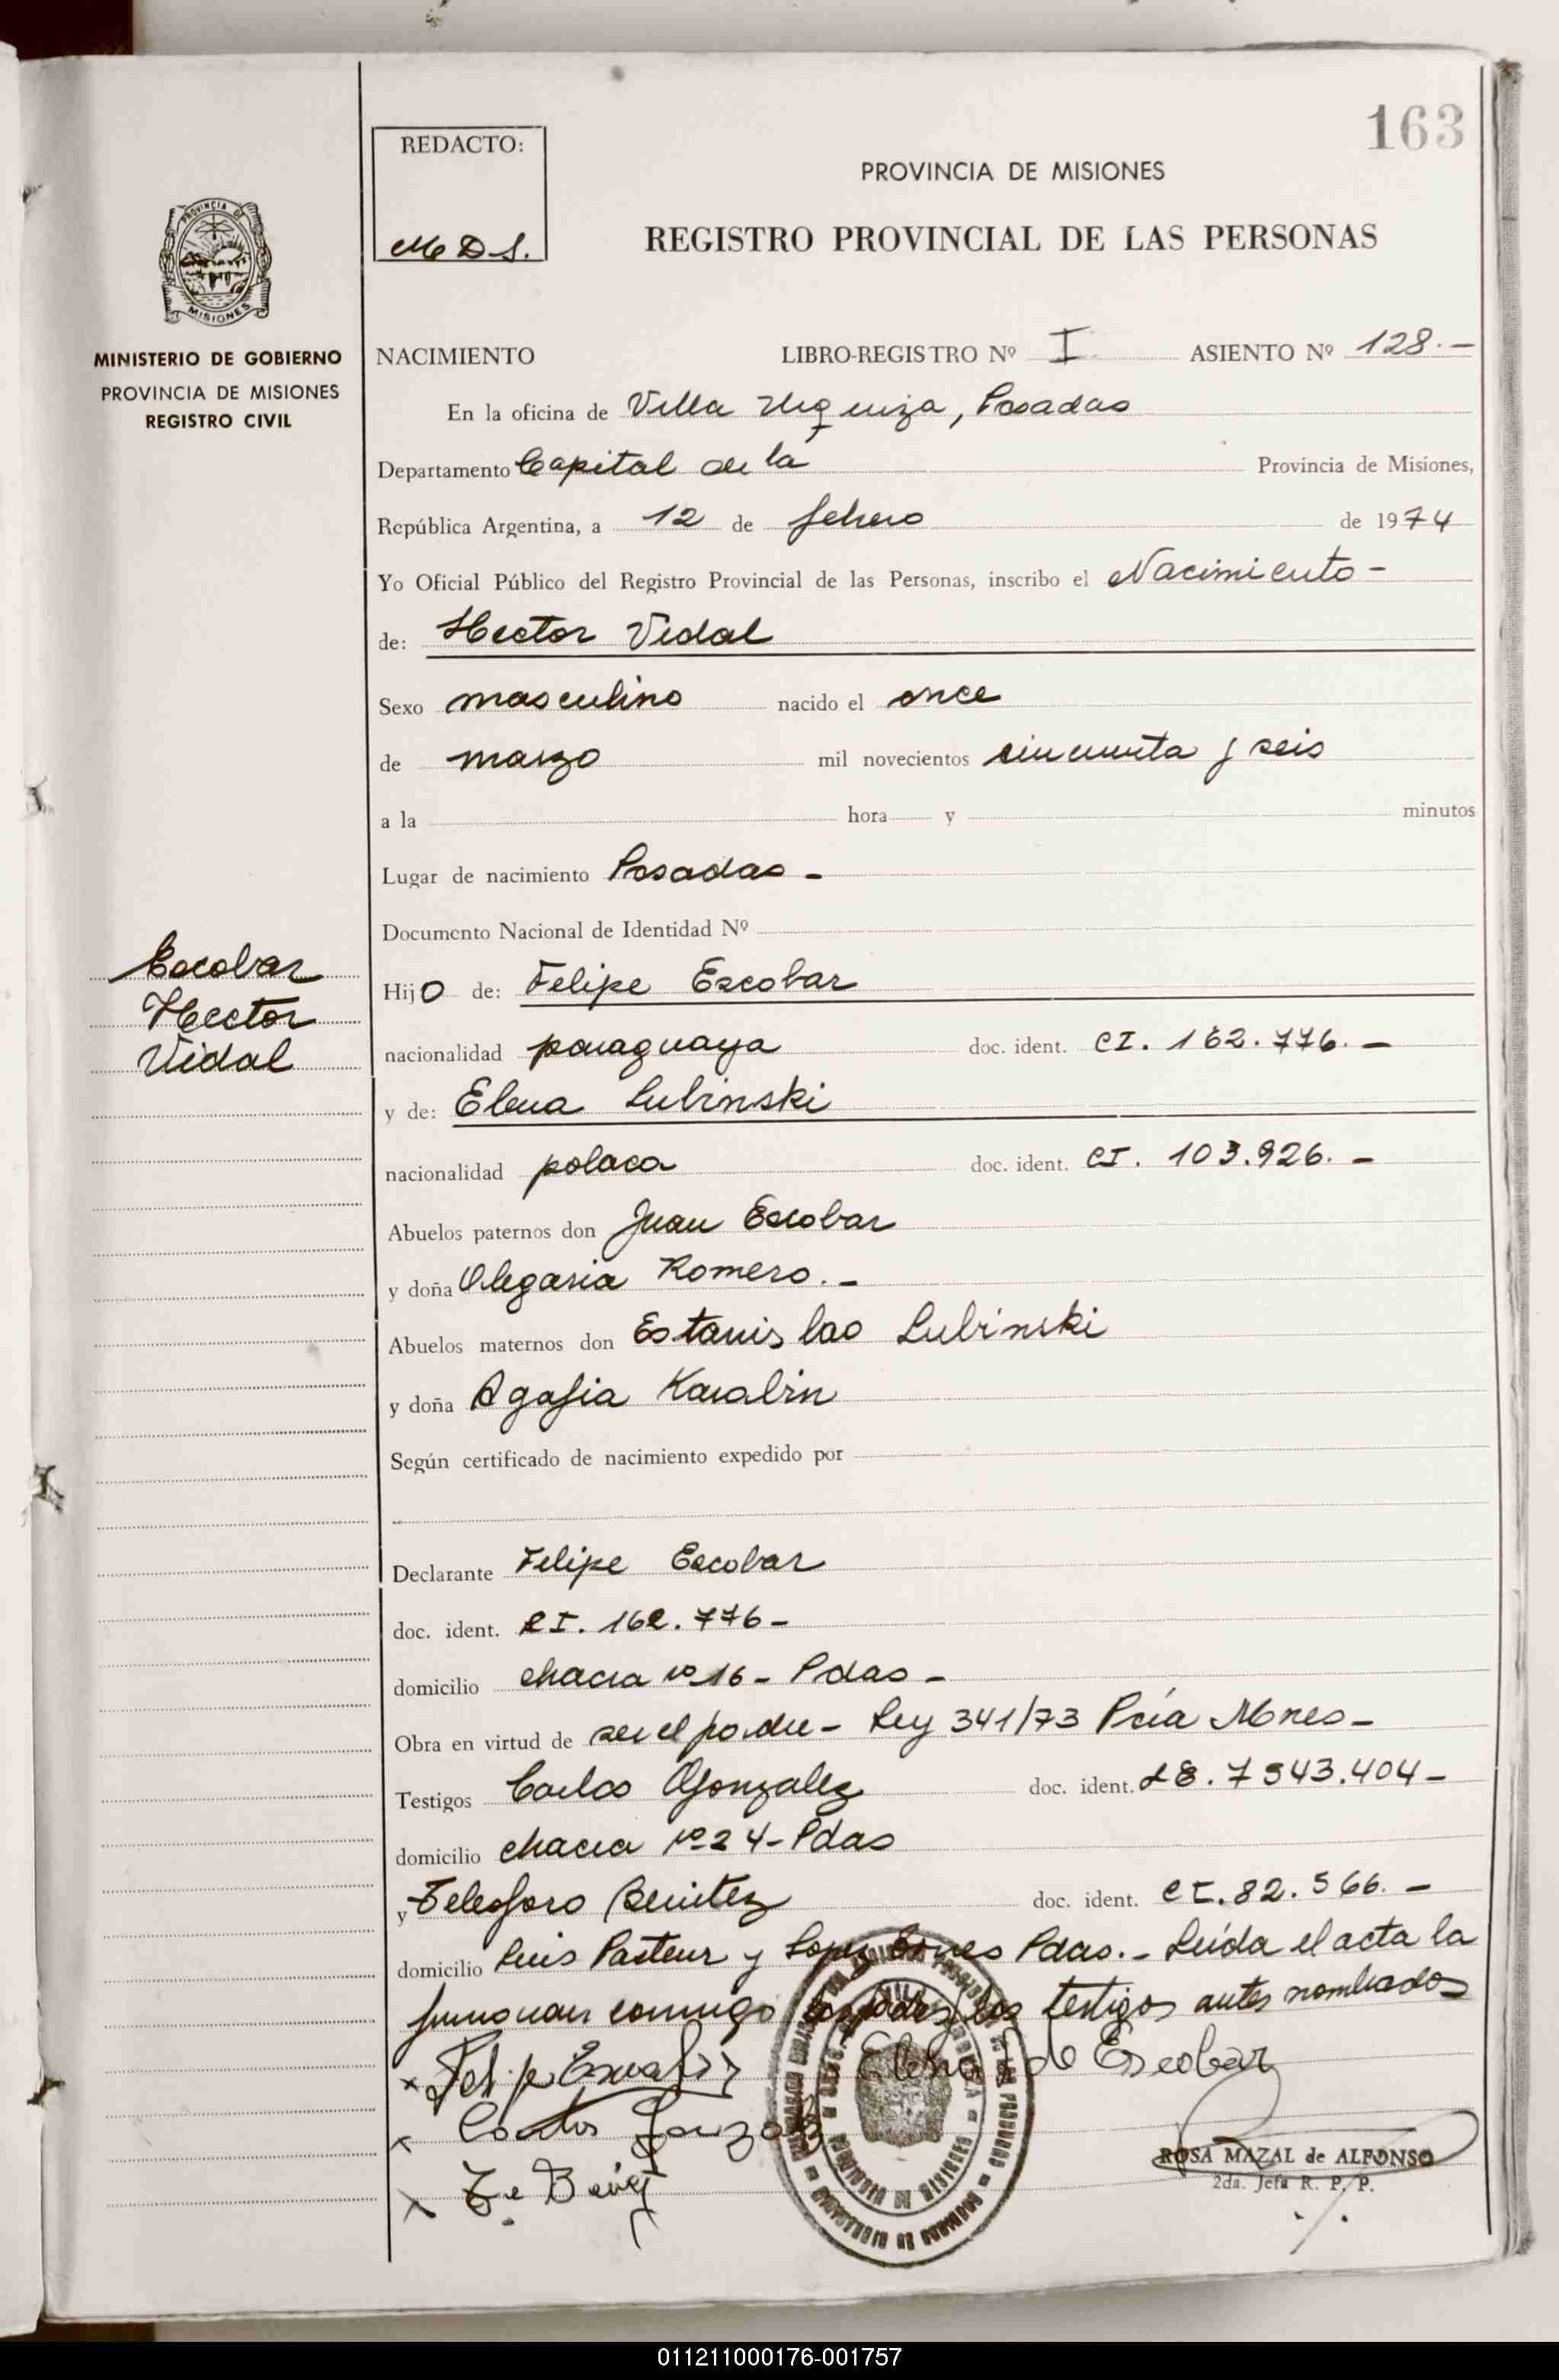 163
REDACTO:
M D S.
PROVINCIA DE MISIONES
REGISTRO PROVINCIAL DE LAS PERSONAS
PROVINCIA DE
MISIONES
MINISTERIO DE GOBIERNO
PROVINCIA DE MISIONES
REGISTRO CIVIL
NACIMIENTO LIBRO-REGISTRO Nº I ASIENTO Nº 128.-
En la oficina de Villa Urquiza, Posadas
Departamento Capital de la Provincia de Misiones,
República Argentina, a 12 de febrero de 1974
Yo Oficial Público del Registro Provincial de las Personas, inscribo el Nacimiento-
de: Hector Vidal
Sexo masculino nacido el once
de marzo mil novecientos cincuenta y seis
a la hora y minutos
Lugar de nacimiento Posadas -
Documento Nacional de Identidad Nº
Escobar
Hector
Vidal
Hijo de: Felipe Escobar
nacionalidad paraguaya doc. ident. CI. 162.776.-
y de: Elena Lubinski
nacionalidad polaca doc. ident. CI. 103.926.-
Abuelos paternos don Juan Escobar
y doña Olegaria Romero.-
Abuelos maternos don Estanislao Lubinski
y doña Agafia Karabin
Según certificado de nacimiento expedido por
Declarante Felipe Escobar
doc. ident. CI. 162.776-
domicilio chacra nº 16- Pdas-
Obra en virtud de ser el padre- Ley 341/73 Pcia Mnes-
Testigos Carlos Gonzalez doc. ident. 7543.404-
domicilio chacra nº 24- Pdas
y Telesforo Benitez doc. ident. CI. 82.566.-
domicilio Luis Pasteur y Lopez Pdas.- Leída el acta la
firman conmigo los testigos antes nombrados
Elena de Escobar
ROSA MAZAL de ALFONSO
2da. Jefa R. P. P.
011211000176-001757